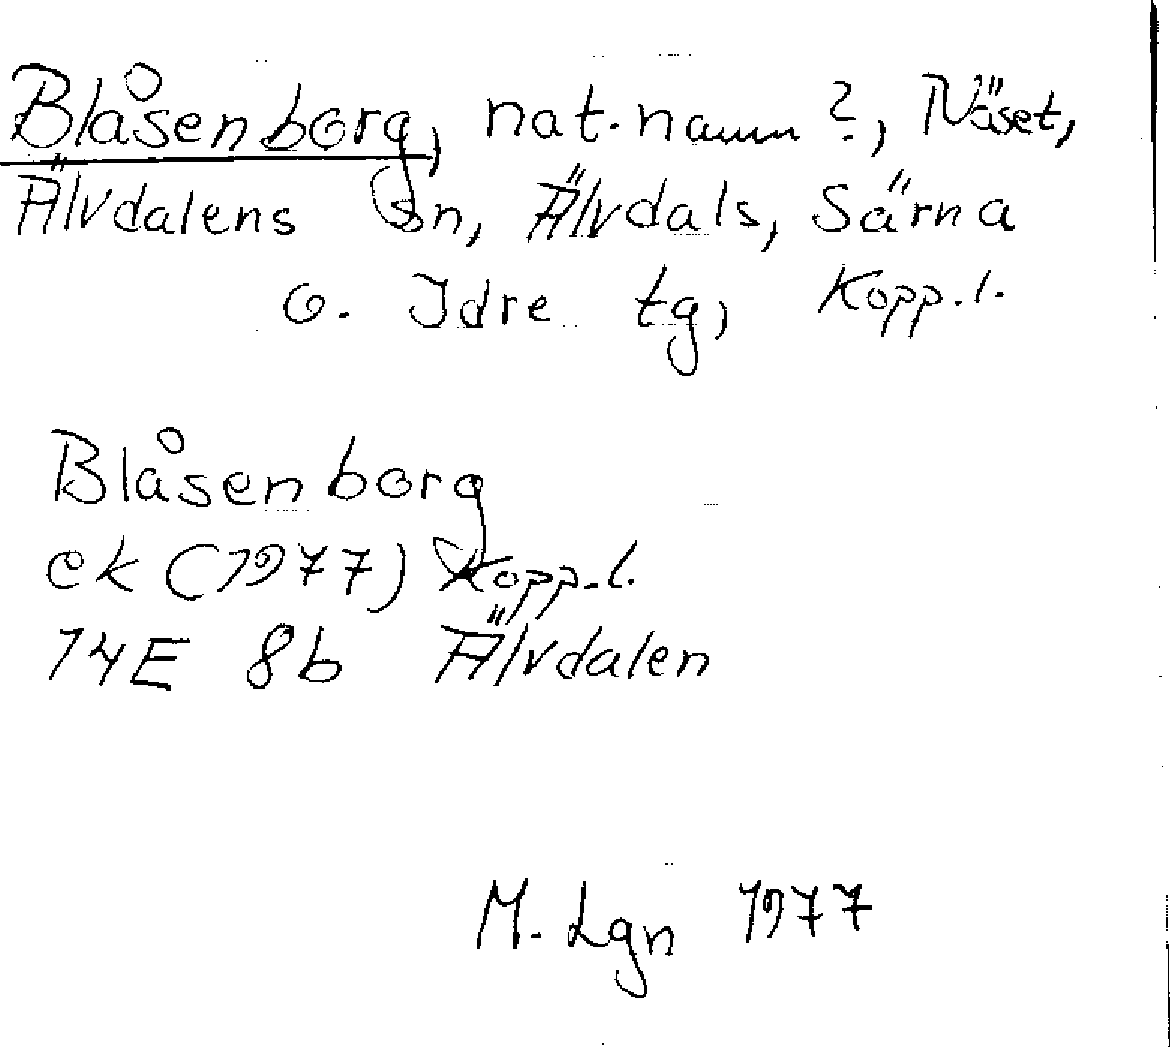 Blåsenborg, nat.namn?, Näset,
Älvdalens sn, Älvdals, Särna
o. Idre tg, Kopp.l.
Blåsenborg
ek (1977) Kopp.l.
14E 8b Älvdalen
M. Lgn 1977